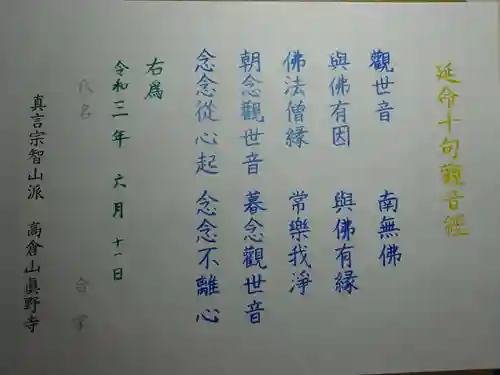 延命十句觀音經
觀世音　南無佛
與佛有因　與佛有縁
佛法僧縁　常樂我淨
朝念觀世音　暮念觀世音
念念從心起　念念不離心
右爲
令和三年　六月　十一日
氏名　合掌
真言宗智山派　高倉山眞野寺